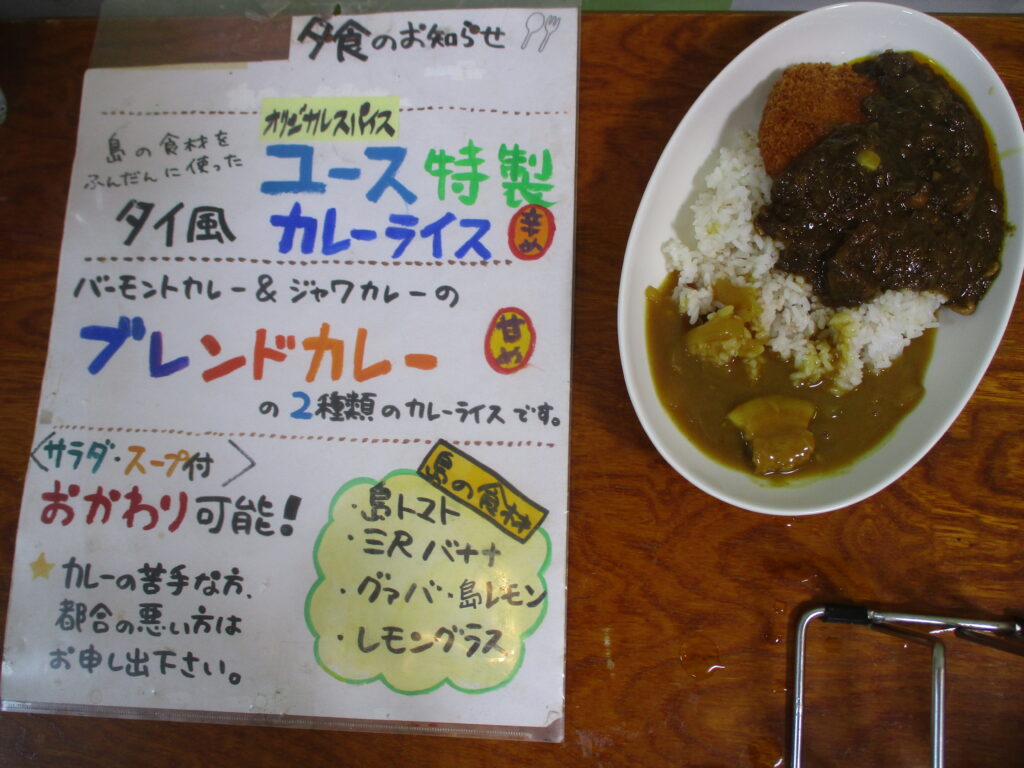 夕食のお知らせ
オリジナルスパイス
島の食材を
ふんだんに使った
ユース特製
タイ風 カレーライス 辛め
バーモントカレー & ジャワカレーの
ブレンドカレー 甘め
の2種類のカレーライスです。
サラダ・スープ付
おかわり可能!
カレーの苦手な方、
都合の悪い方は
お申し出下さい。
島の食材
・島トマト
・三尺バナナ
・グァバ・島レモン
・レモングラス